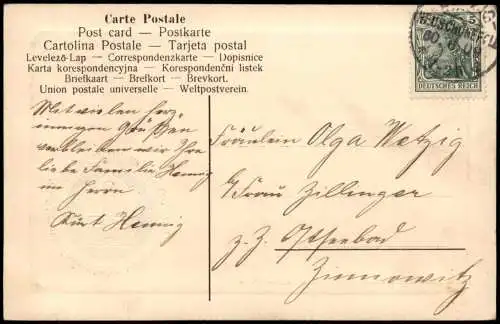 Carte Postale
Post card — Postkarte
Cartolina Postale — Tarjeta postal
Levelező-Lap — Correspondenzkarte — Dopisnice
Karta korespondencyjna — Korespondenční listek
Briefkaart — Brefkort — Brevkort.
Union postale universelle — Weltpostverein.
5
DEUTSCHES REICH
Mit vielen herz
innigen Grüßen
verbleiben wir Ihre
liebe Familie Hennig
im Herrn
Kurt Hennig
Fräulein Olga Wetzig
b/ Frau Zillinger
z. Z. Ostseebad
Zinnowitz